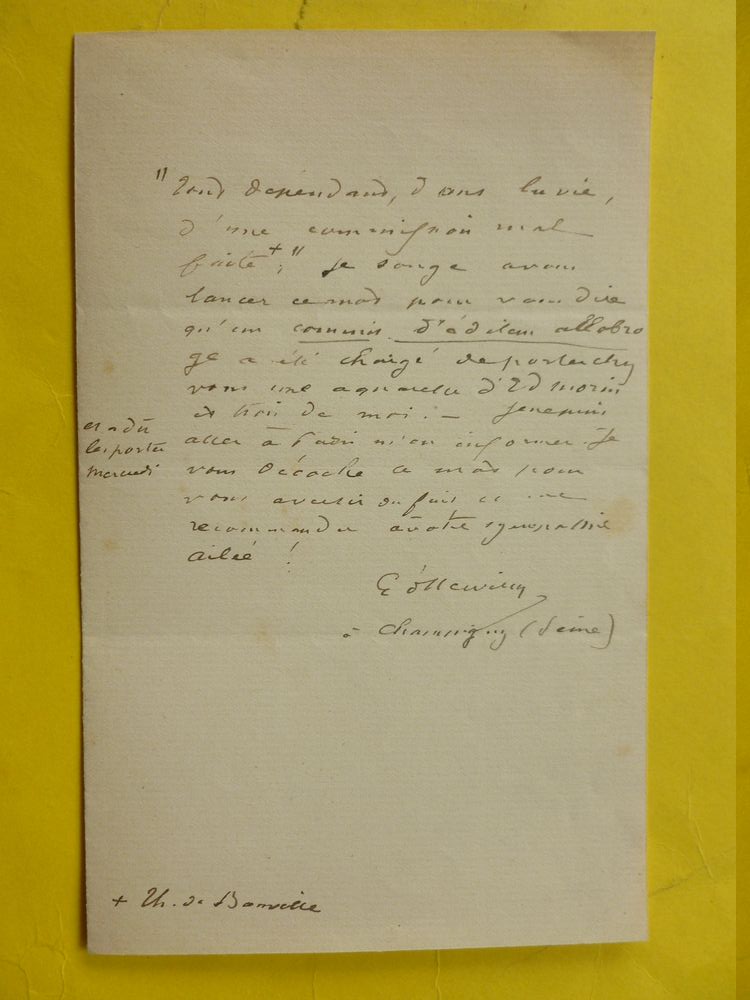 "Tout dépend, dans la vie,
d'une commission mal
faite +;" Je songe avous
lancer ce mot pour vous dire
qu'un commis d'éditeur allobro
ge a été chargé de porter chez
vous une aquarelle d'Ed morin
et trois de moi. — Je ne puis
aller à Paris m'en informer. Je
vous décoche ce mot pour
vous avertir du fait et me
recommander à votre sympathie
ailée !
et a dû
les porter
mercredi
G d'Hervilly
à Champigny (Seine)
+ Th. de Banville